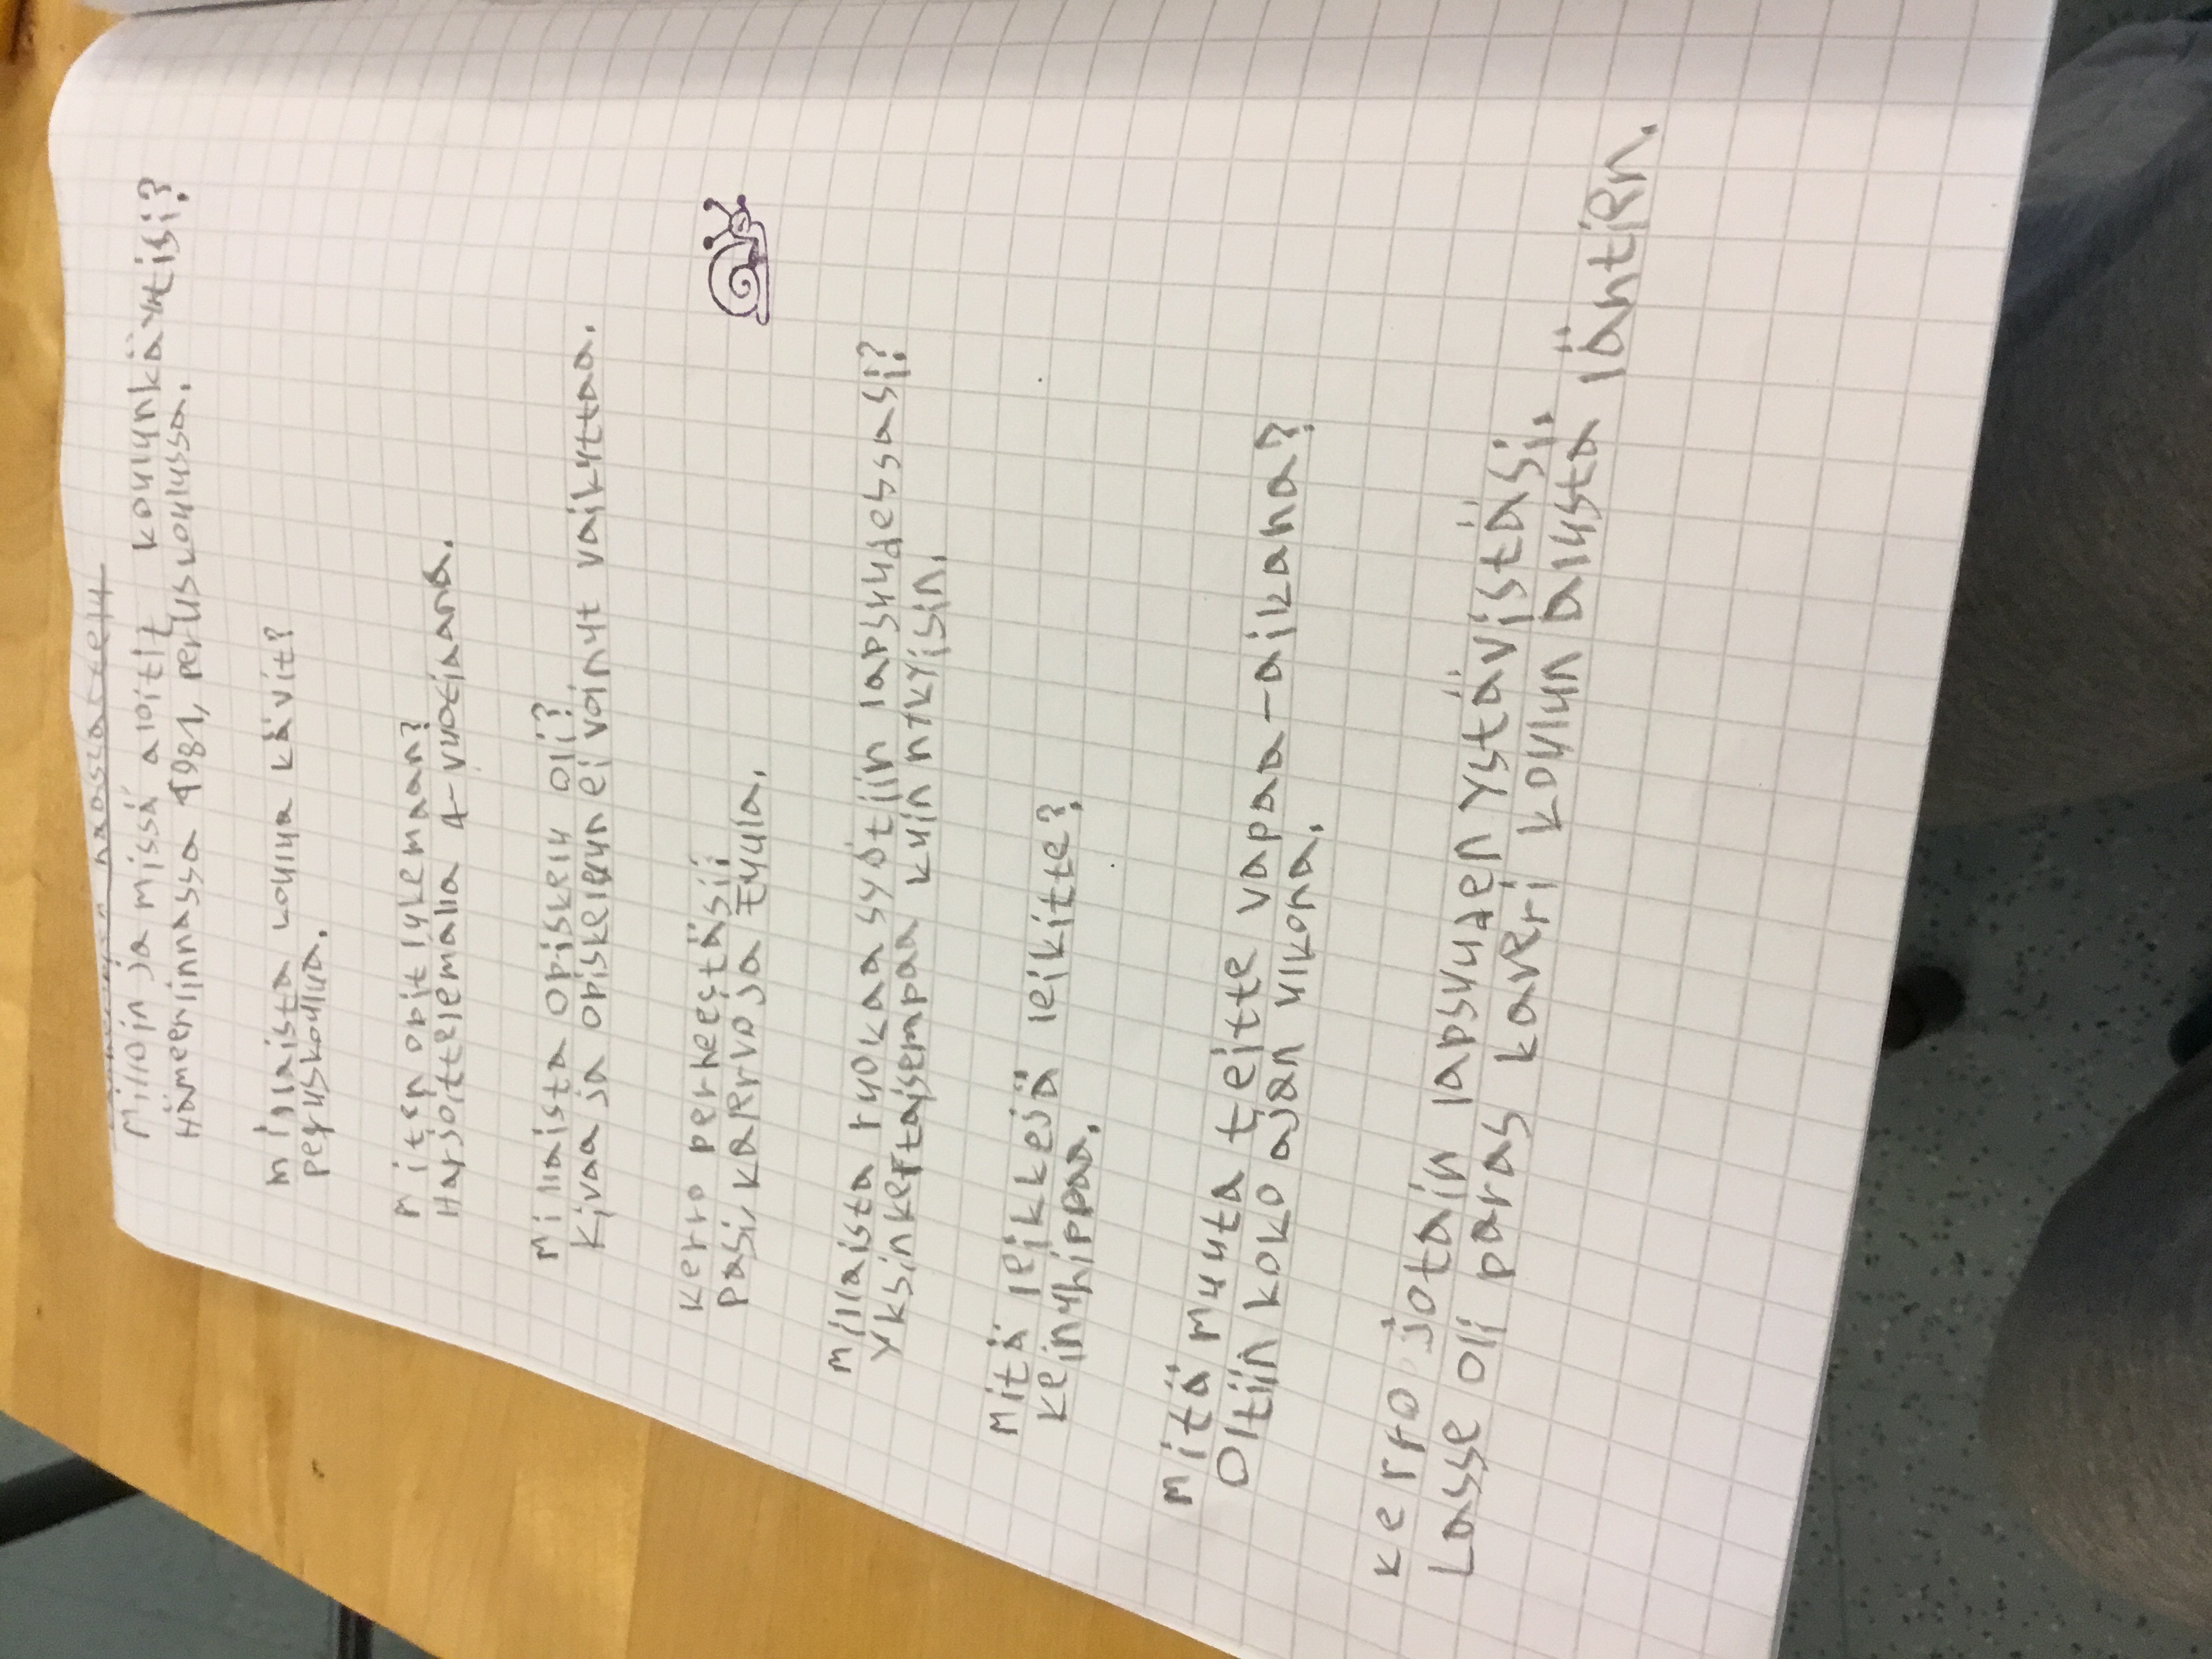 haastattelu
Milloin ja missä aloitit koulunkäyntisi?
Hämeenlinnassa 1981, peruskoulussa.
Millaista koulua kävit?
peruskoulua.
Miten opit lukemaan?
Harjoittelemalla 4-vuotiaana.
Millaista opiskelu oli?
Kivaa ja opiskeluun ei voinut vaikuttaa.
Kerro perheestäsi:
Pasi, Kaarvo ja Tuula.
Millaista ruokaa syötiin lapsuudessasi?
Yksinkertaisempaa kuin nykyisin.
Mitä leikkejä leikitte?
Keinuhippaa.
Mitä muuta teitte vapaa-aikana?
Oltiin koko ajan ulkona.
Kerro jotain lapsuuden ystävistäsi.
Lasse oli paras kaveri koulun alusta läntien.